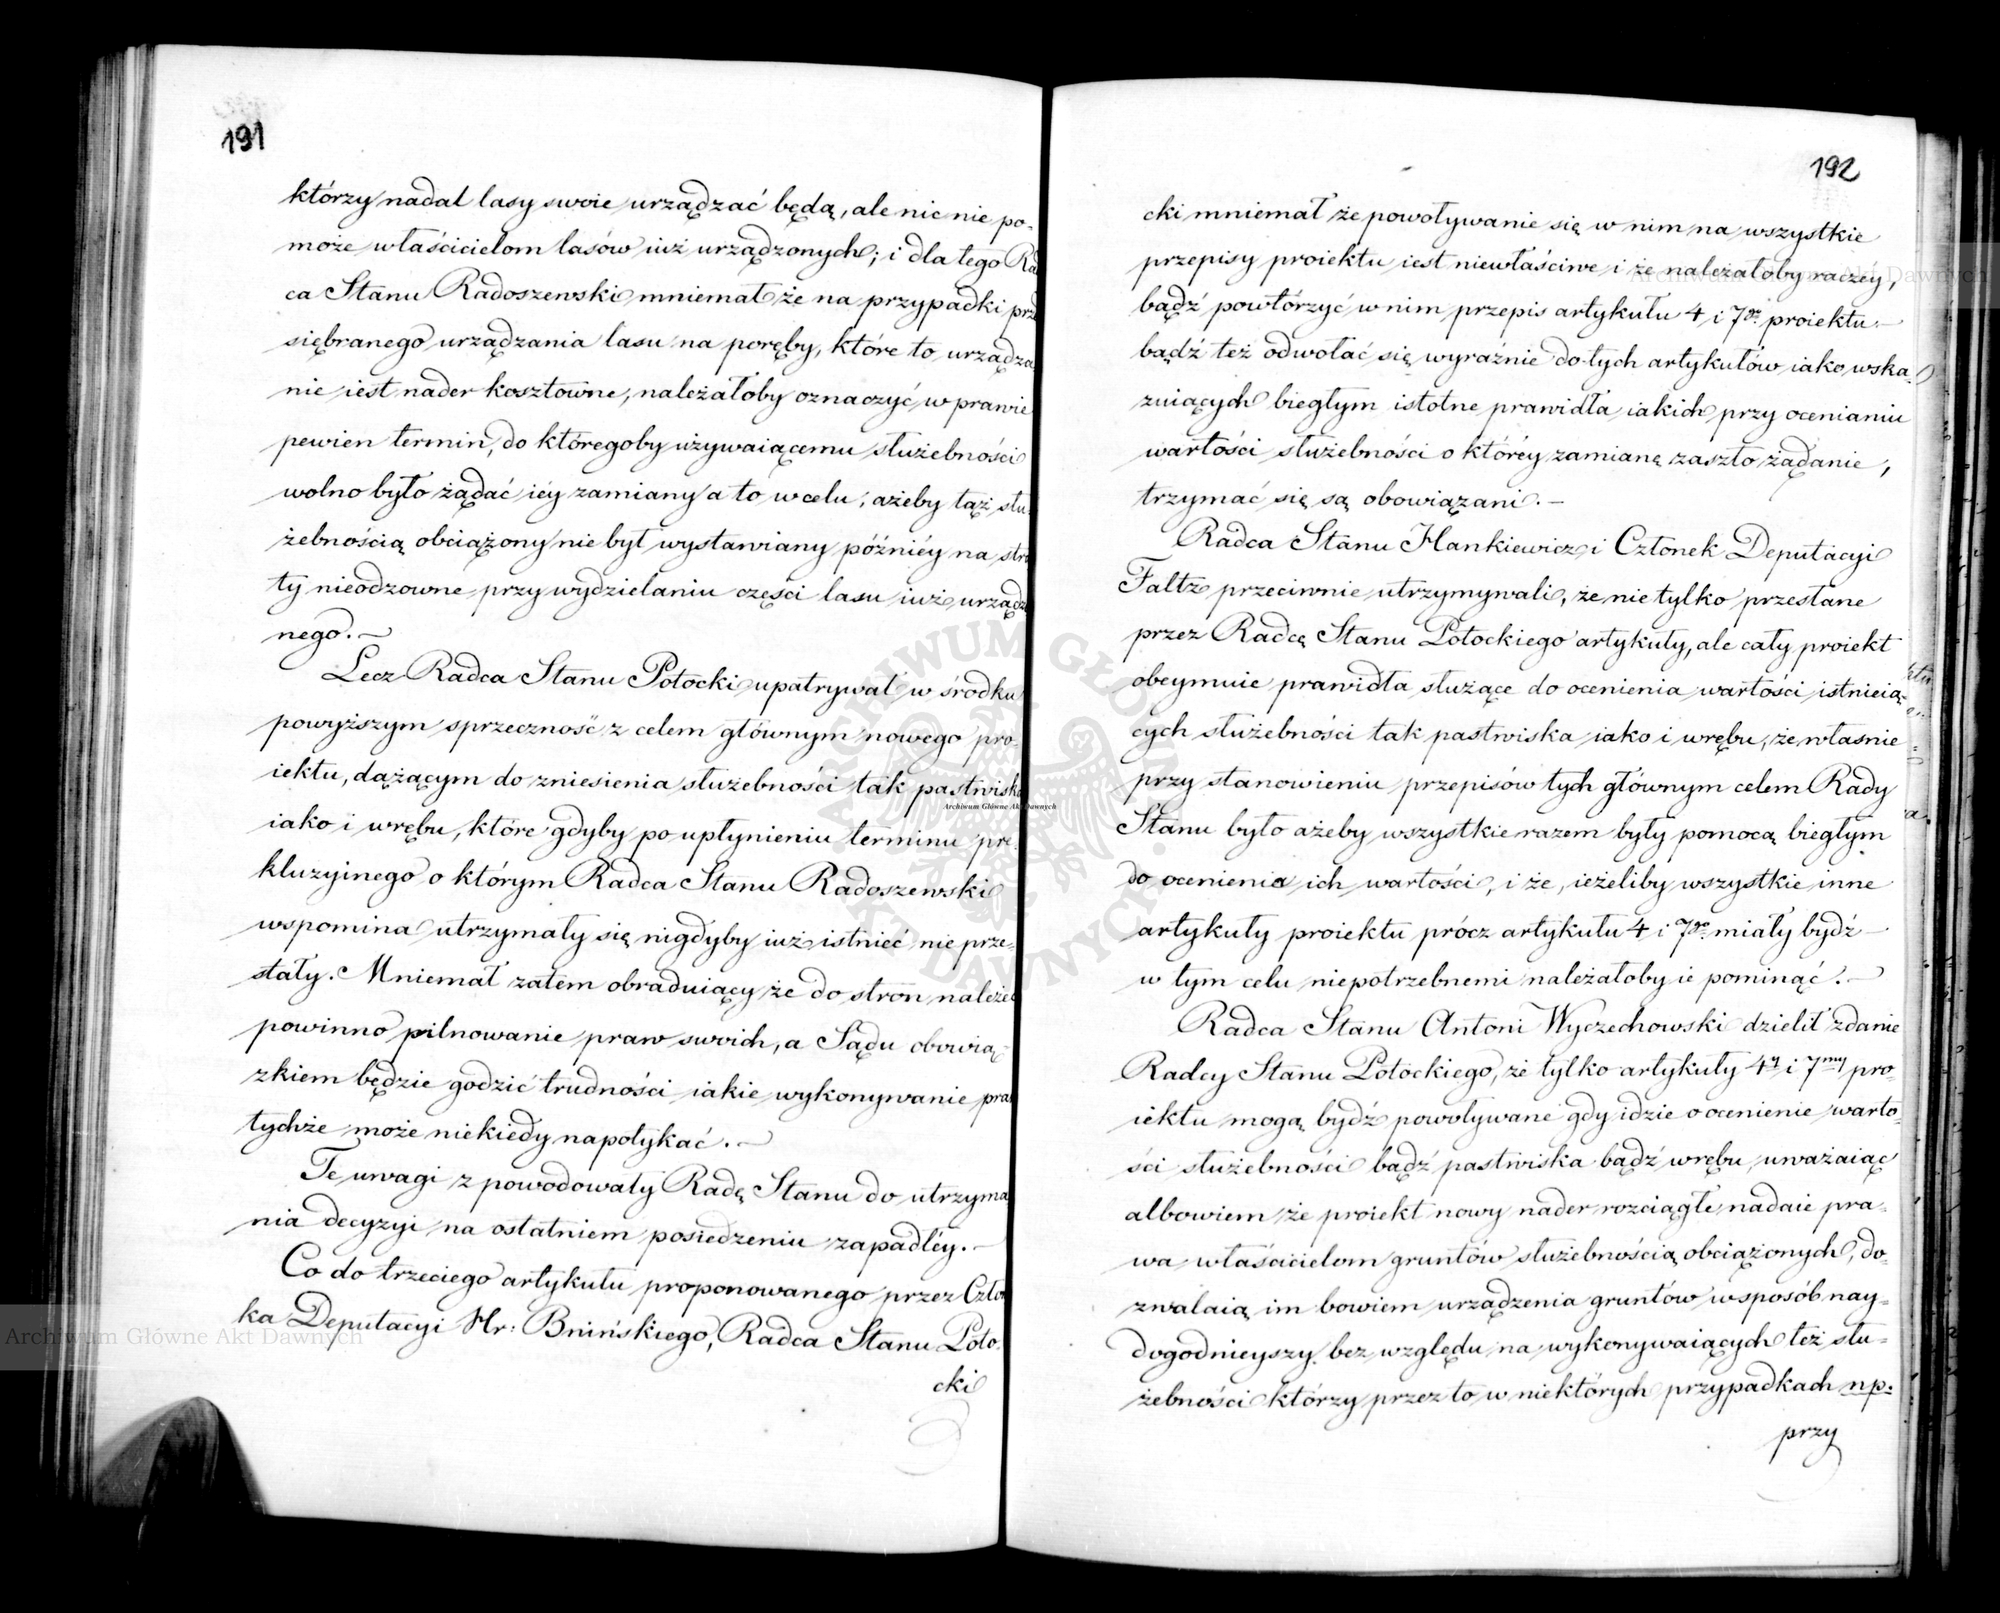 191
którzy nadal lasy swoie urządzać będą, ale nic nie po-
może właścicielom lasów iuż urządzonych; i dla tego Rad
ca Stanu Radoszewski mniemał że na przypadki prz
siębranego urządzania lasu na poręby, które to urządza
nie iest nader kosztowne, należałoby oznaczyć w prawie
pewien termin, do któregoby używaiącemu służebności
wolno było żądać iéy zamiany a to w celu, ażeby tąż słu-
żebnością obciążony nie był wystawiany późniéy na stra
ty nieodzowne przy wydzielaniu części lasu iuż urządzo
nego.—
Lecz Radca Stanu Potocki upatrywał w środku
powyższym sprzeczność z celem głównym nowego pro-
iektu, dążącym do zniesienia służebności tak pastwiska
iako i wrębu, które gdyby po upłynieniu terminu pre-
kluzyinego o którym Radca Stanu Radoszewski
wspomina utrzymały się nigdyby iuż istnieć nie prze-
stały. Mniemał zatem obraduiący że do stron należeć
powinno pilnowanie praw swoich, a Sądu obowią-
zkiem będzie godzić trudności iakie wykonywanie praw
tychże może niekiedy napotykać.—
Te uwagi z powodowały Radę Stanu do utrzyma
nia decyzyi na ostatniem posiedzeniu zapadłéy.—
Co do trzeciego artykułu proponowanego przez Człon
ka Deputacyi Hr: Bnińskiego, Radca Stanu Poto-
cki
192
cki mniemał że powoływanie się w nim na wszystkie
przepisy proiektu iest niewłaściwe i że należałoby raczéy,
bądź powtórzyć w nim przepis artykułu 4 i 7go proiektu—
bądź też odwołać się wyraźnie do tych artykułów iako wska-
zuiących biegłym istotne prawidła iakich przy ocenianiu
wartości służebności o któréy zamianę zaszło żądanie,
trzymać się są obowiązani.—
Radca Stanu Hankiewicz i Członek Deputacyi
Faltz przeciwnie utrzymywali, że nie tylko przesłane
przez Radcę Stanu Potockiego artykuły, ale cały proiekt
obeymuie prawidła służące do ocenienia wartości istnieią-
cych służebności tak pastwiska iako i wrębu, że własnie
przy stanowieniu przepisów tych głównym celem Rady
Stanu było ażeby wszystkie razem były pomocą biegłym
do ocenienia ich wartości, i że, ieżeliby wszystkie inne
artykuły proiektu prócz artykułu 4 i 7go miały bydź—
w tym celu niepotrzebnemi należałoby ie pominąć.—
Radca Stanu Antoni Wyczechowski dzielił zdanie
Radcy Stanu Potockiego, że tylko artykuły 4y i 7my pro-
iektu mogą bydź powoływane gdy idzie o ocenienie warto-
ści służebności bądź pastwiska bądź wrębu, uważaiąc
albowiem że proiekt nowy nader rozciągłe nadaie pra-
wa właścicielom gruntów służebnością obciążonych, do-
zwalaią im bowiem urządzenia gruntów w sposób nay-
dogodnieyszy bez względu na wykonywaiących też słu-
żebności którzy przez to w niektórych przypadkach np:
przy
Archiwum Główne Akt Dawnych
Archiwum Główne Akt Dawnych
Archiwum Główne Akt Dawnych
ARCHIWUM GŁÓWNE AKT DAWNYCH